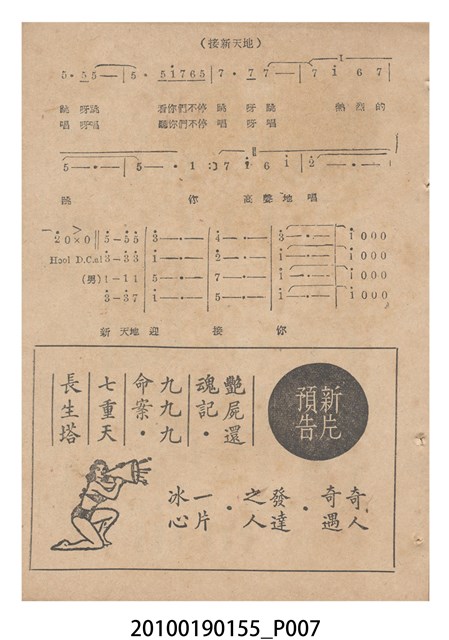 (接新天地)
5· 5 5 — | 5 · 5 1 7 6 5 | 7 · 7 7 — | 7 i 6 7 |
跳 呀跳 看你們不停 跳 呀跳 熱烈的
唱 呀唱 聽你們不停 唱 呀唱
5 — · — | 5 — · 1 :| 7 i 6 i | 2 — · — |
跳 你 高聲地唱
2 0 × 0 || 5 — 5 5 | 3 — · — | 4 — · — | 3 — · — | · — | i 0 0 0
Hool D.C.al 3 — 3 3 | i — · — | 2 — · — | i — · — | · — | i 0 0 0
(男) 1 — 1 1 | 5 — · — | 7 — · — | 5 — · — | · — | i 0 0 0
3 — 3 7 | i — · — | 5 — · — | i — · — | · — | i 0 0 0
新 天地 迎 接 你
新片
預告
艷屍還
魂記·
九九九
命案·
七重天
長生塔
奇人
奇遇·
發達
之人·
一片
冰心
20100190155_P007